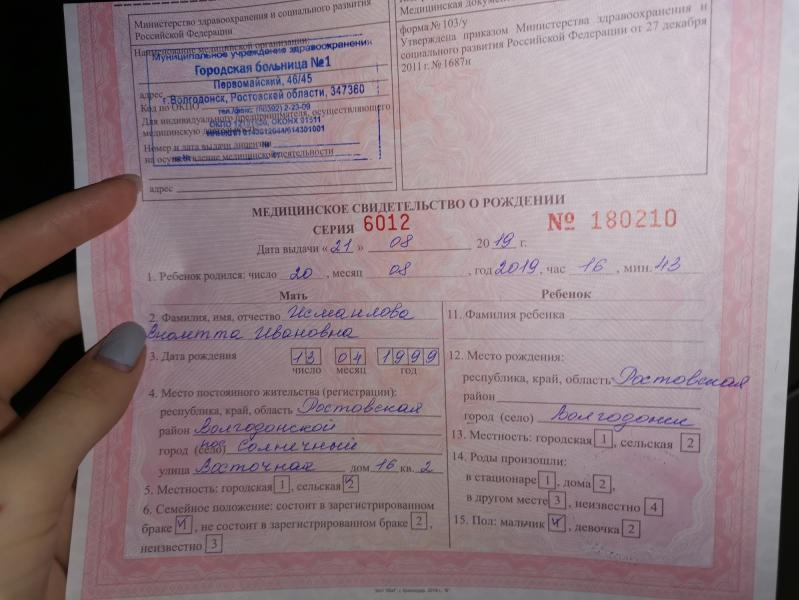 Министерство здравоохранения и социального развития
Российской Федерации
Наименование медицинской организации:
Муниципальное учреждение здравоохранения
Городская больница №1
Первомайский, 46/45
адрес
г.Волгодонск, Ростовской области, 347360
Код по ОКПО
тел./факс: (86392) 2-23-09
Для индивидуального предпринимателя, осуществляющего
медицинскую
Номер и дата выдачи лицензии
на осуществление медицинской деятельности
адрес
Медицинская
форма № 103/у
Утверждена приказом Министерства здравоохранения и
социального развития Российской Федерации от 27 декабря
2011 г. № 1687н
МЕДИЦИНСКОЕ СВИДЕТЕЛЬСТВО О РОЖДЕНИИ
СЕРИЯ 6012 № 180210
Дата выдачи « 21 » 08 20 19 г.
1. Ребенок родился: число 20 , месяц 08 , год 2019 , час 16 , мин. 43
Мать
2. Фамилия, имя, отчество Исмаилова
Виолетта Ивановна
3. Дата рождения 13 04 1999
число месяц год
4. Место постоянного жительства (регистрации):
республика, край, область Ростовская
район Волгодонской
город (село) пос Солнечный
улица Восточная дом 16 кв. 2
5. Местность: городская 1 , сельская 2
6. Семейное положение: состоит в зарегистрированном
браке 1 , не состоит в зарегистрированном браке 2 ,
неизвестно 3
Ребенок
11. Фамилия ребенка
12. Место рождения:
республика, край, область Ростовская
район
город (село) Волгодонск
13. Местность: городская 1 , сельская 2
14. Роды произошли:
в стационаре 1 , дома 2 ,
в другом месте 3 , неизвестно 4
15. Пол: мальчик 1 , девочка 2